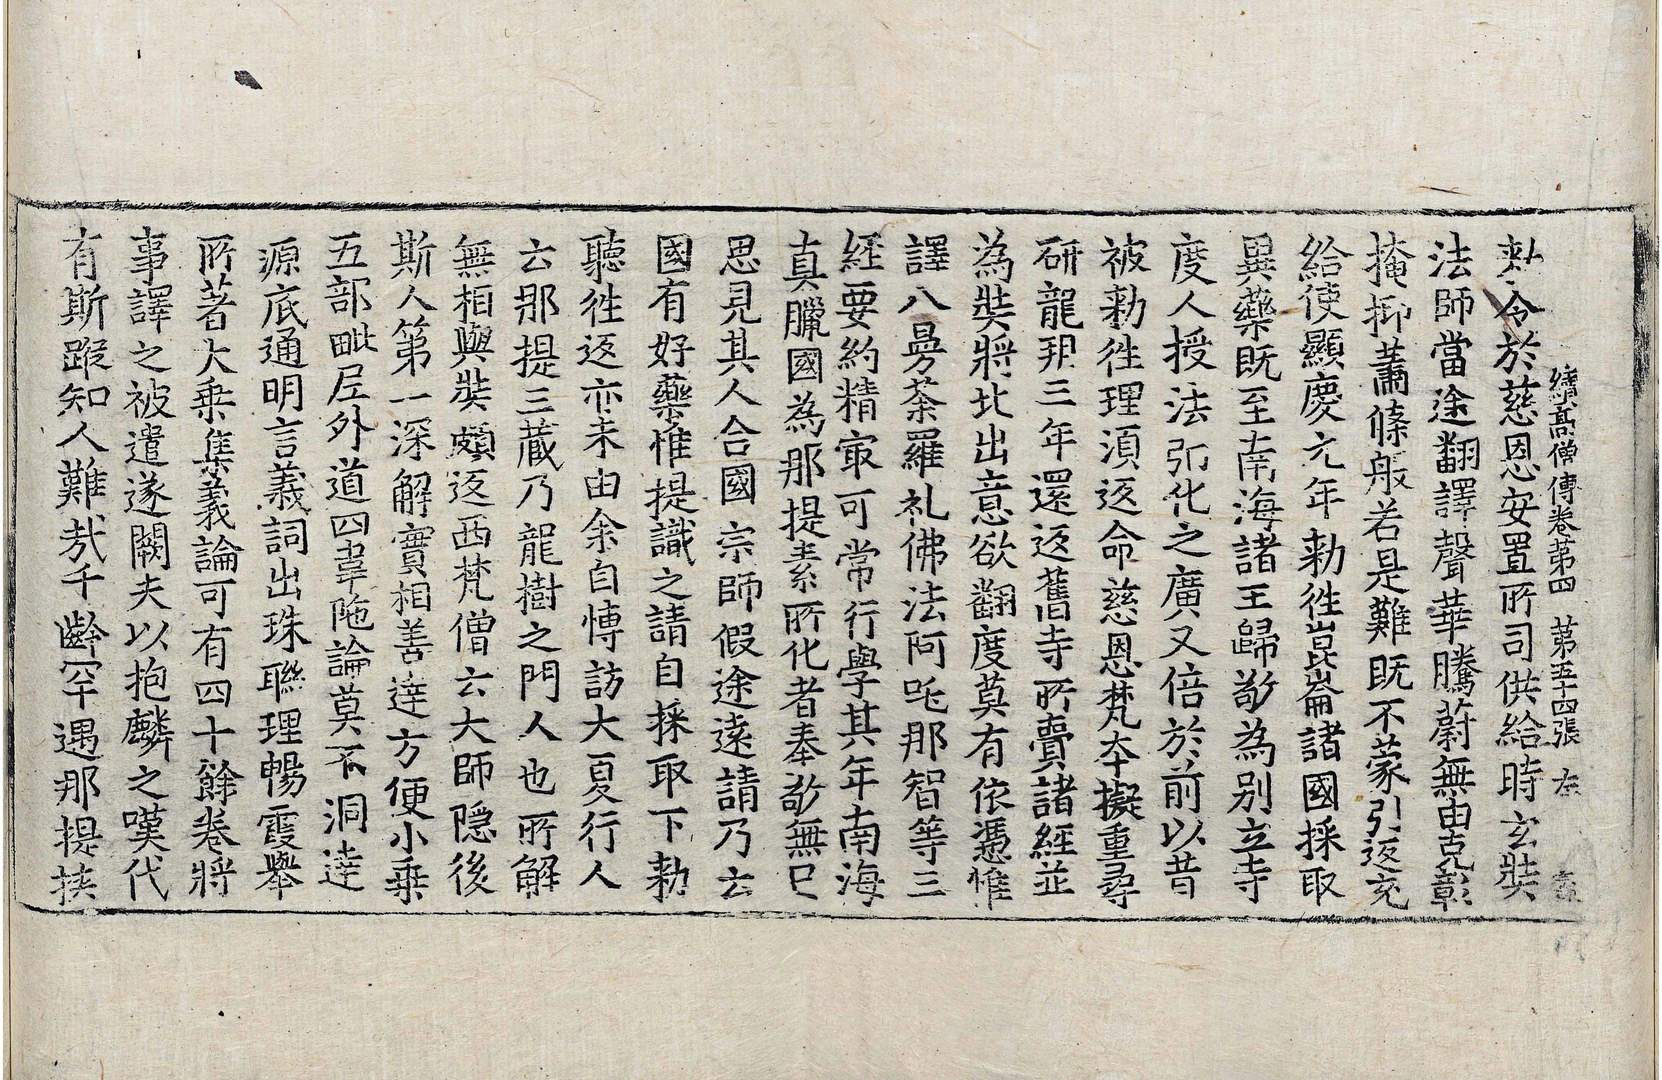 續高僧傳卷第四　第五十四張　左
勑令於慈恩安置所司供給時玄奘
法師當途翻譯聲華騰蔚無由克彰
掩抑蕭條般若是難既不蒙引返充
給使顯慶元年勑往崑崙諸國採取
異藥既至南海諸王歸敬為別立寺
度人授法弘化之廣又倍於前以昔
被勑往理須返命慈恩梵本擬重尋
研龍朔三年還返舊寺所賷諸經並
為奘將北出意欲翻度莫有依憑惟
譯八曼荼羅礼佛法阿吒那智等三
經要約精㝡可常行學其年南海
真臘國為那提素所化者奉敬無已
思見其人合國宗師假途遠請乃云
國有好藥惟提識之請自採取下勑
聽往返亦未由余自博訪大夏行人
云那提三藏乃龍樹之門人也所解
無相與奘頗返西梵僧云大師隱後
斯人第一深解實相善達方便小乗
五部毗尼外道四韋陁論莫不洞達
源底通明言義詞出珠聯理暢霞舉
所著大乗集義論可有四十餘卷將
事譯之被遣遂闕夫以抱麟之嘆代
有斯蹤知人難哉千齡罕遇那提挾